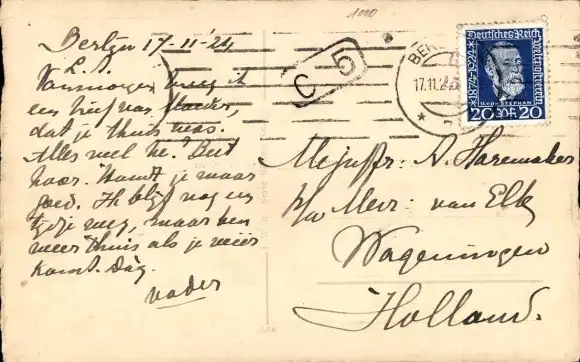 1000
Berlijn 17-11-24
L. A.
Vanmorgen kreeg ik
een brief van Moeder,
dat je thuis was.
Alles wel he? Best
hoor. Houdt je maar
goed. Ik blijf nog een
tijdje weg, maar ben
weer thuis als je weer
komt. Dag.
Vader
C 5
BER
17.11.24
Deutsches Reich
Weltpostverein
1874-1924
H.v. STEPHAN
20 Pf 20
Mejuffr. A. Haremaker
p/a Mevr. van Elk
Wageningen
Holland.